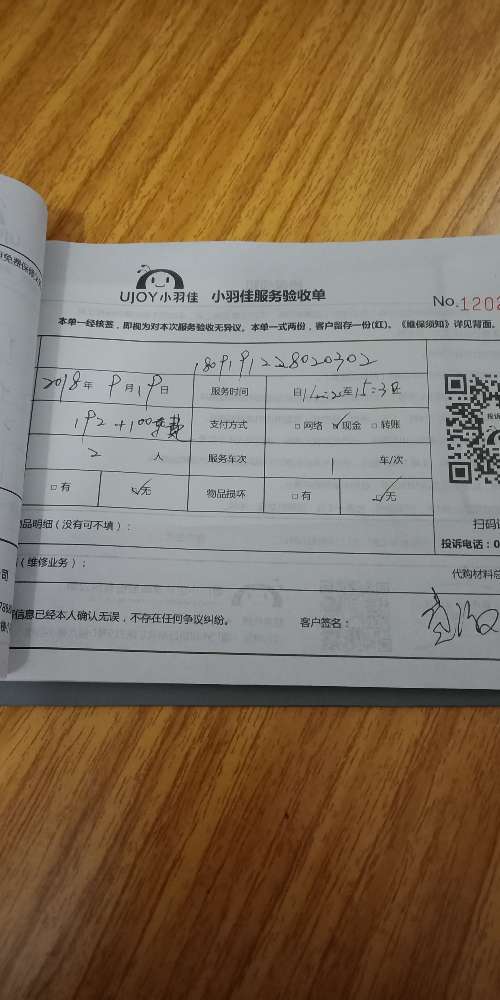 UJOY小羽佳 小羽佳服务验收单
No.1202
本单一经核签，即视为对本次服务验收无异议。本单一式两份，客户留存一份(红)。《维保须知》详见背面。
2018年9月19日 服务时间 自 至15:30
192+100 支付方式 □网络 ☑现金 □转账
2人 服务车次 1车/次
□有 ☑无 物品损坏 □有 ☑无
品明细（没有可不填）：
扫码
投诉电话：0
（维修业务）：
代购材料总
信息已经本人确认无误，不存在任何争议纠纷。 客户签名：